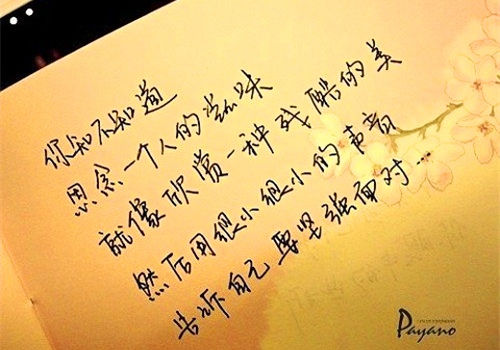 你知不知道
思念一个人的滋味
就像欣赏一种残酷的美
然后用很小很小的声音
告诉自己要坚强面对…
Payano